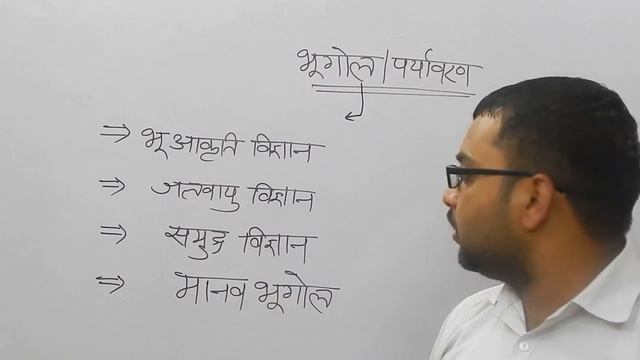 भूगोल / पर्यावरण
⇒ भू आकृति विज्ञान
⇒ जलवायु विज्ञान
⇒ समुद्र विज्ञान
⇒ मानव भूगोल